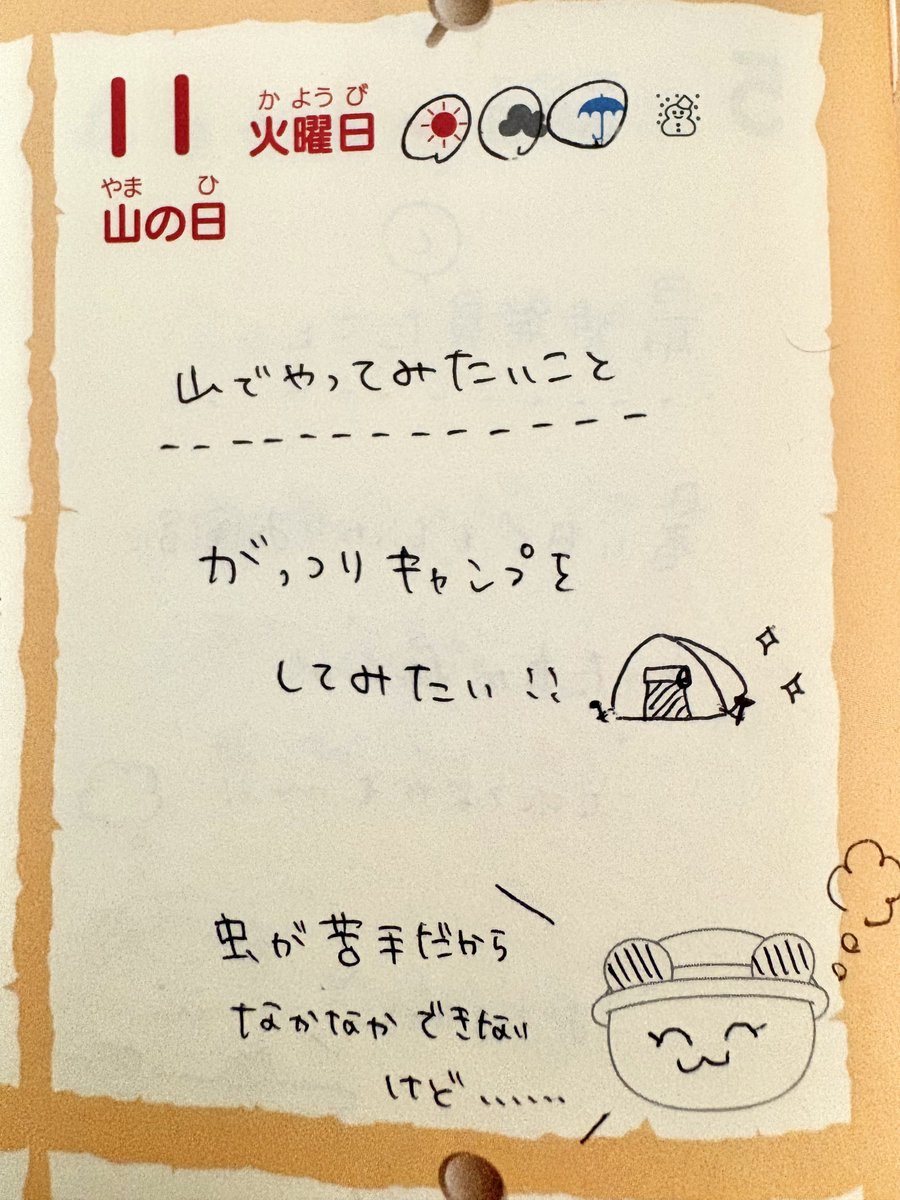 11 火曜日
かようび
山の日
やまひ
山でやってみたいこと
がっつりキャンプを
してみたい!!
虫が苦手だから
なかなかできない
けど……